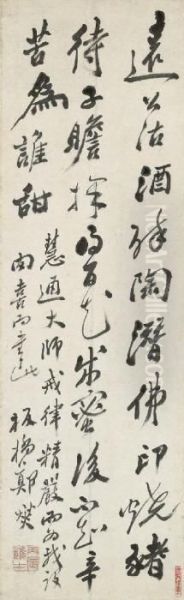 遠公沽酒飲陶潛佛印燒豬
待子瞻採得百花成蜜後不知辛
苦為誰甜
慧通大師戒律精嚴而為我設
肉喜而書此 板橋鄭燮